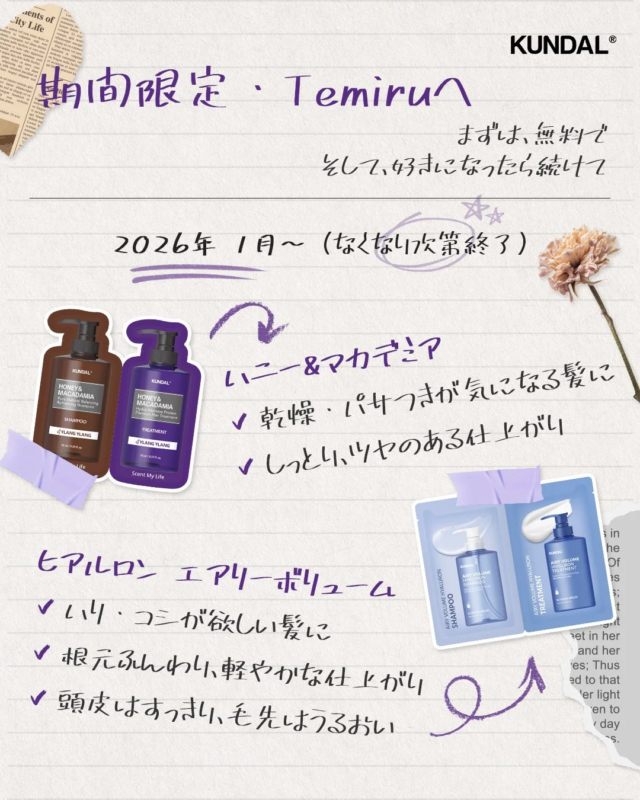 ents of
City Life
KUNDAL®
期間限定・Temiruへ
まずは、無料で
そして、好きになったら続けて
2026年 1月〜(なくなり次第終了)
KUNDAL
HONEY&
MACADAMIA
SHAMPOO
YLANG YLANG
KUNDAL
HONEY&
MACADAMIA
TREATMENT
YLANG YLANG
Scent My Life
ハニー&マカデミア
乾燥・パサつきが気になる髪に
しっとり、ツヤのある仕上がり
KUNDAL
AIRY VOLUME HYALURON
SHAMPOO
KUNDAL
AIRY VOLUME HYALURON
TREATMENT
ヒアルロン エアリーボリューム
ハリ・コシが欲しい髪に
根元ふんわり、軽やかな仕上がり
頭皮はすっきり、毛先はうるおい
s in
he
Of
es
s;
ght
eet in her
and her
es; Thus
ed to that
der light
en to
y day
s.